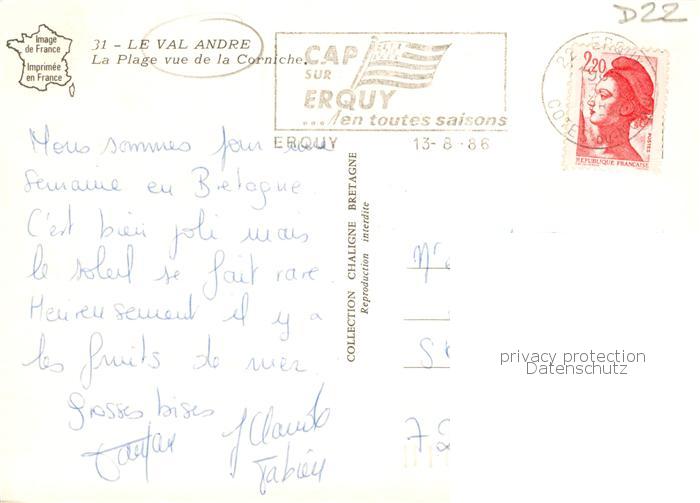 D22
Image
de France
Imprimée
en France
31 - LE VAL ANDRE
La Plage vue de la Corniche.
CAP
SUR
ERQUY
...en toutes saisons
ERQUY 13-8-86
22 ERQUY
COTES-DU-
2,20
POSTES
REPUBLIQUE FRANÇAISE
Nous sommes pour une
semaine en Bretagne
C'est bien joli mais
le soleil se fait rare.
Heureusement il y a
les fruits de mer.
Grosses bises
J Claude
Fabien
COLLECTION CHALIGNE BRETAGNE
Reproduction interdite
Mr
S
72
privacy protection
Datenschutz